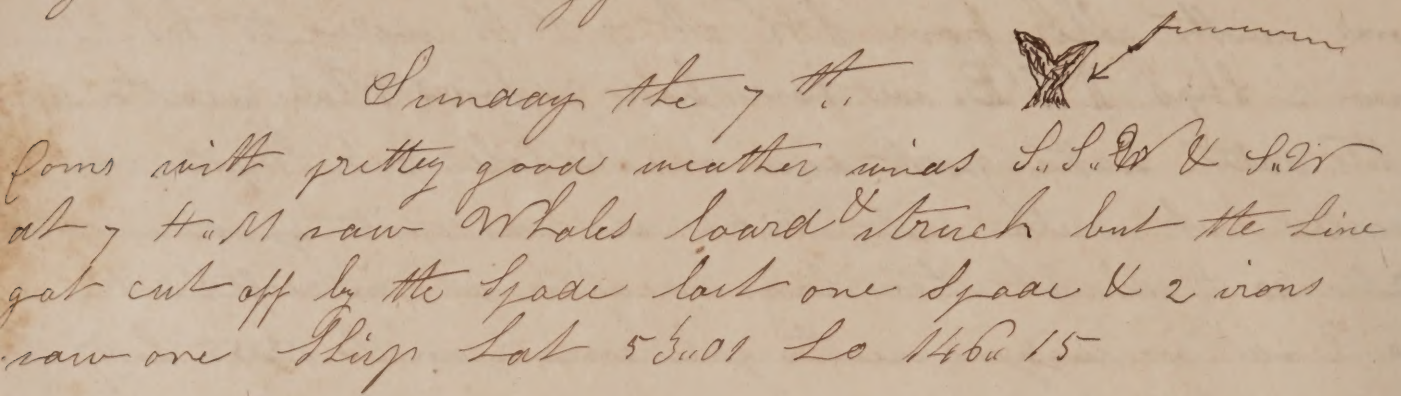 Sunday the 7th
Coms with pretty good weather winds S.,S.,W & S.,W
at 7 A.,M saw Whales loard & struck but the Line
got cut off by the Spade lost one Spade & 2 irons
saw one Ship Lat 53.,01 Lo 146.,15